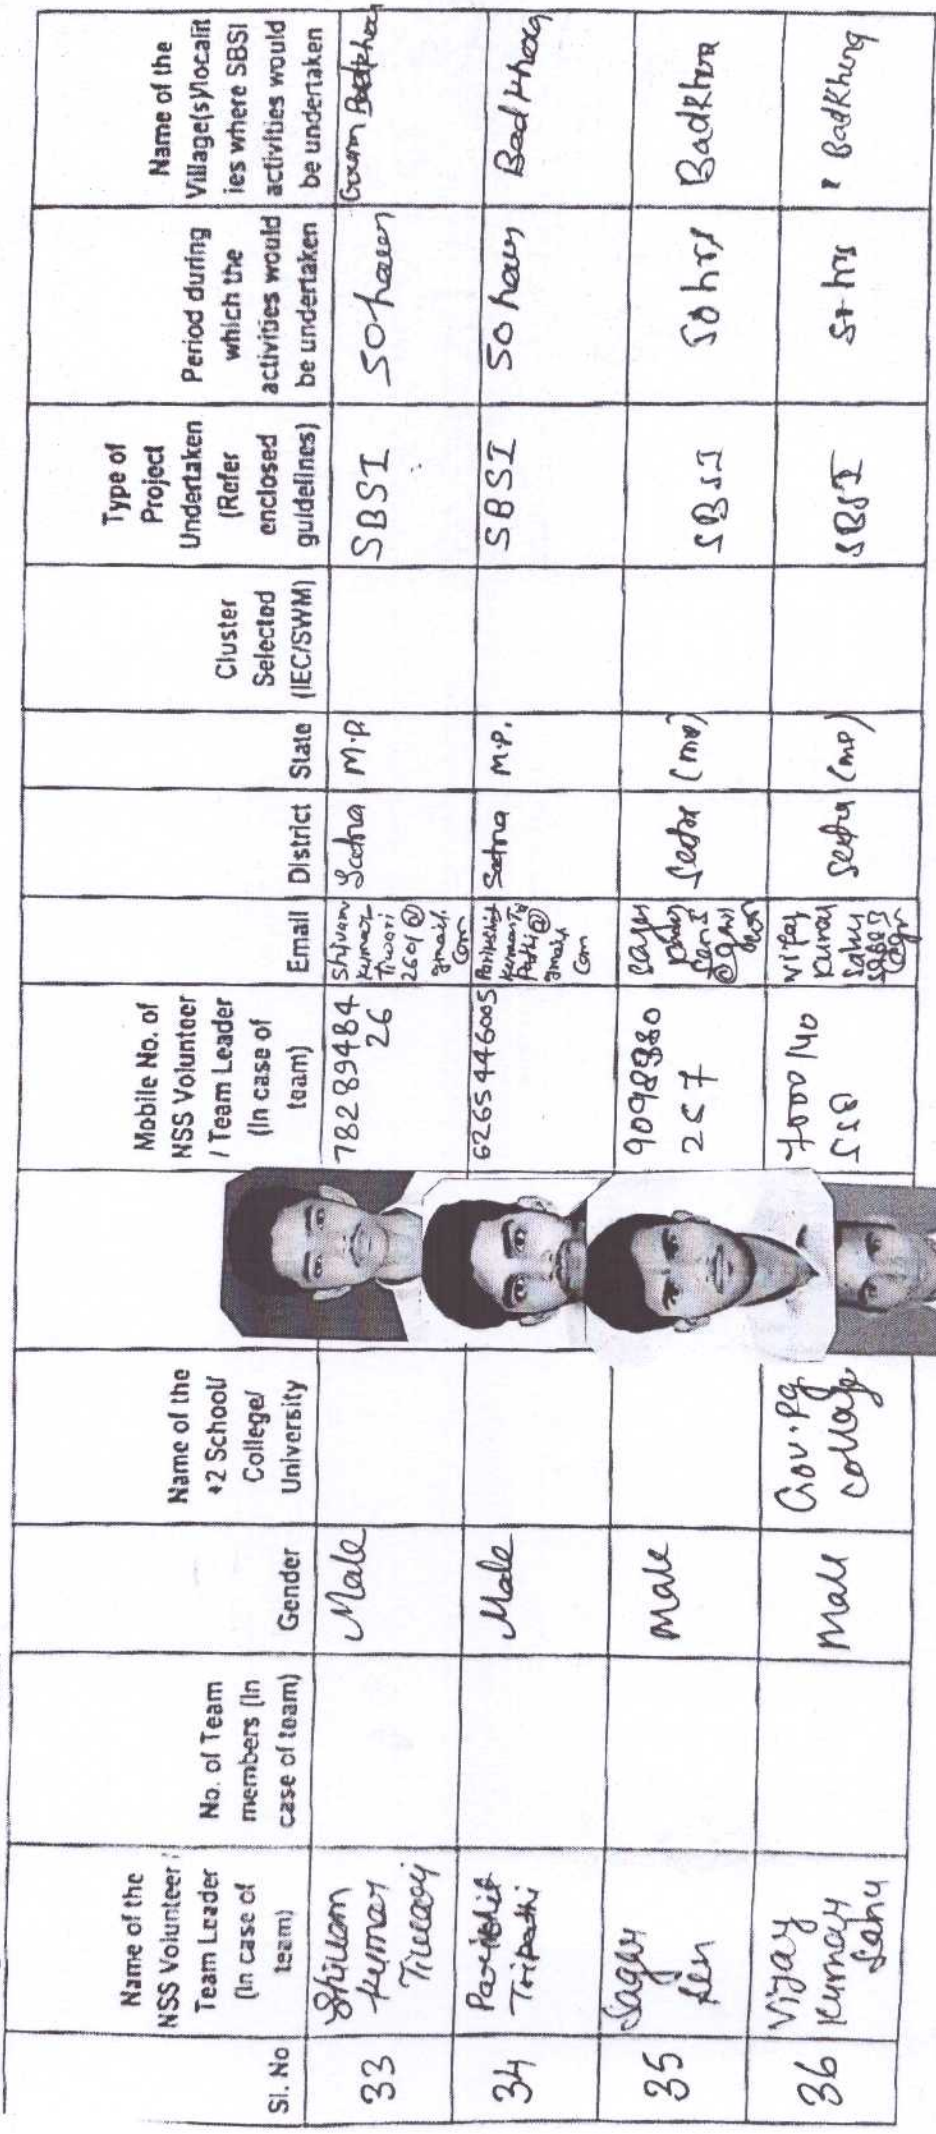 Sl. No
Name of the
NSS Volunteer /
Team Leader
(In case of
team)
No. of Team
members (In
case of team)
Gender
Name of the
+2 School/
College/
University
Mobile No. of
NSS Volunteer
/ Team Leader
(In case of
team)
Email
District
State
Cluster
Selected
(IEC/SWM)
Type of
Project
Undertaken
(Refer
enclosed
guidelines)
Period during
which the
activities would
be undertaken
Name of the
Village(s)/localit
ies where SBSI
activities would
be undertaken
33
Shivam
Kumar
Tiwari
Male
78289484
26
Shivam
kumar
Tiwari
2601@
gmail.
Com
Satna
M.P.
SBSI
50 hours
34
Parikshit
Tripathi
Male
6265446005
Parikshit
@
gmail.
Com
Satna
M.P.
SBSI
50 hours
Badkhera
35
Sagar
Sen
Male
9098980
257
Satna
(mp)
SBSI
50 hrs
Badkhera
36
Vijay
Kumar
Sahu
Male
Gov. Pg
College
7000140
550
Vijay
Kumar
Sahu
Satna
(mp)
SBSI
50 hrs
Badkhera